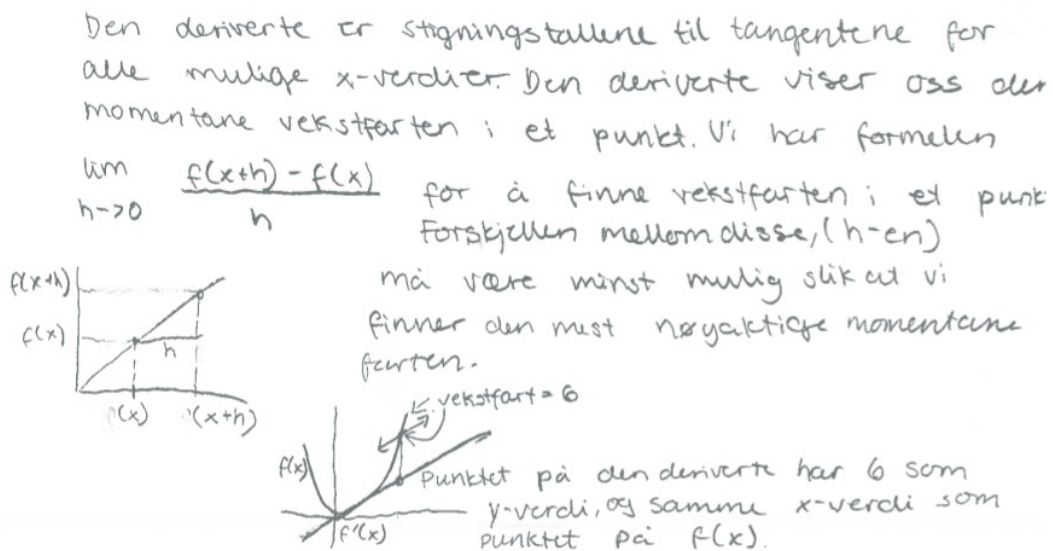 Den deriverte er stigningstallene til tangentene for
alle mulige x-verdier. Den deriverte viser oss den
momentane vekstfarten i et punkt. Vi har formelen
lim h->0 f(x+h) - f(x) / h for å finne vekstfarten i et punk
Forskjellen mellom disse, (h-en)
må være minst mulig slik at vi
finner den mest nøyaktige momentane
farten.
f(x+h)
f(x)
h
(x)
(x+h)
vekstfart = 6
f(x)
f'(x)
Punktet på den deriverte har 6 som
y-verdi, og samme x-verdi som
punktet på f(x).